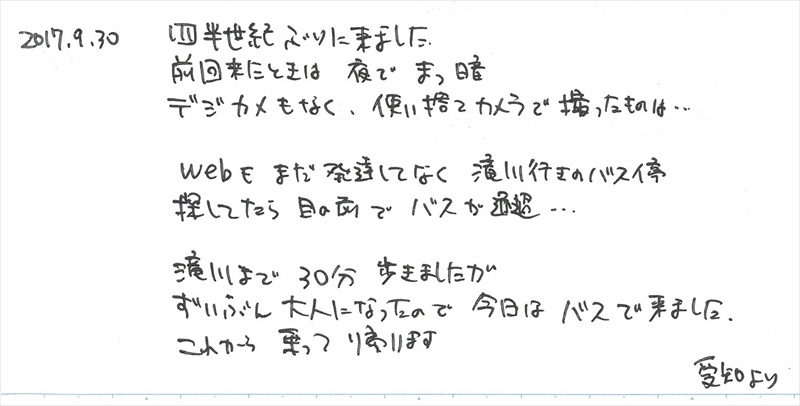 2017.9.30 四半世紀ぶりに来ました.
前回来たときは 夜で まっ暗
デジカメもなく、使い捨てカメラで撮ったものは…
webも まだ 発達してなく 滝川行きのバス停
探してたら 目の前で バスが 通過…
滝川まで 30分 歩きましたが
ずいぶん 大人になったので 今日は バスで来ました.
これから 乗って 帰ります
愛知より